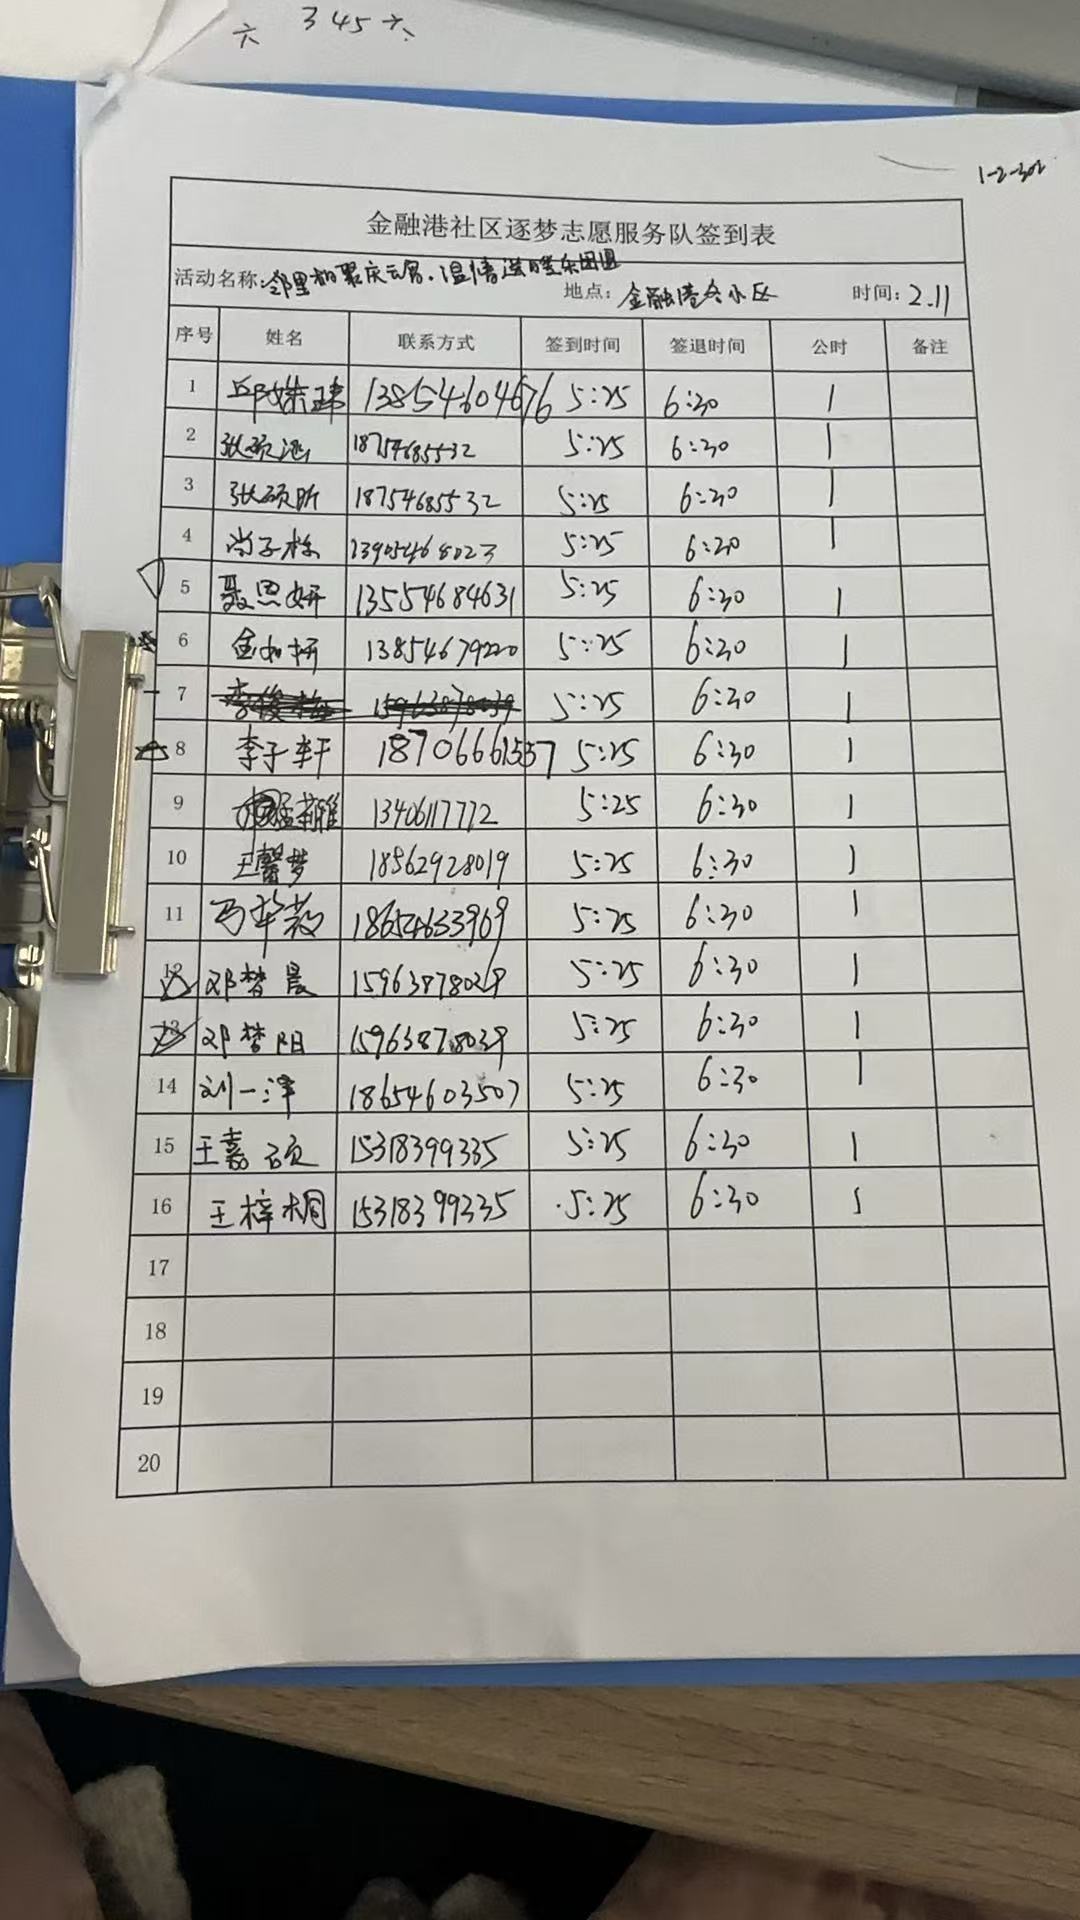 六 345六
1-2-302
金融港社区逐梦志愿服务队签到表
活动名称:邻里相聚庆元宵.温情送暖乐团圆 地点: 金融港各小区 时间: 2.11
序号 姓名 联系方式 签到时间 签退时间 公时 备注
1 邱 13854604676 5:25 6:30 1
2 张硕涵 18754685532 5:25 6:30 1
3 张硕昕 18754685532 5:25 6:30 1
4 尚子栋 13905468023 5:25 6:30 1
5 聂思妍 13554684631 5:25 6:30 1
6 金如妍 13854679220 5:25 6:30 1
7 15963878039 5:25 6:30 1
8 李子轩 18706661537 5:25 6:30 1
9 孟莉雅 13406117772 5:25 6:30 1
10 王馨梦 18562928019 5:25 6:30 1
11 18654633969 5:25 6:30 1
12 邓梦晨 15963878039 5:25 6:30 1
13 邓梦阳 15963878039 5:25 6:30 1
14 刘一泽 18654603507 5:25 6:30 1
15 王嘉硕 15318399335 5:25 6:30 1
16 王梓桐 15318399335 5:25 6:30 1
17
18
19
20